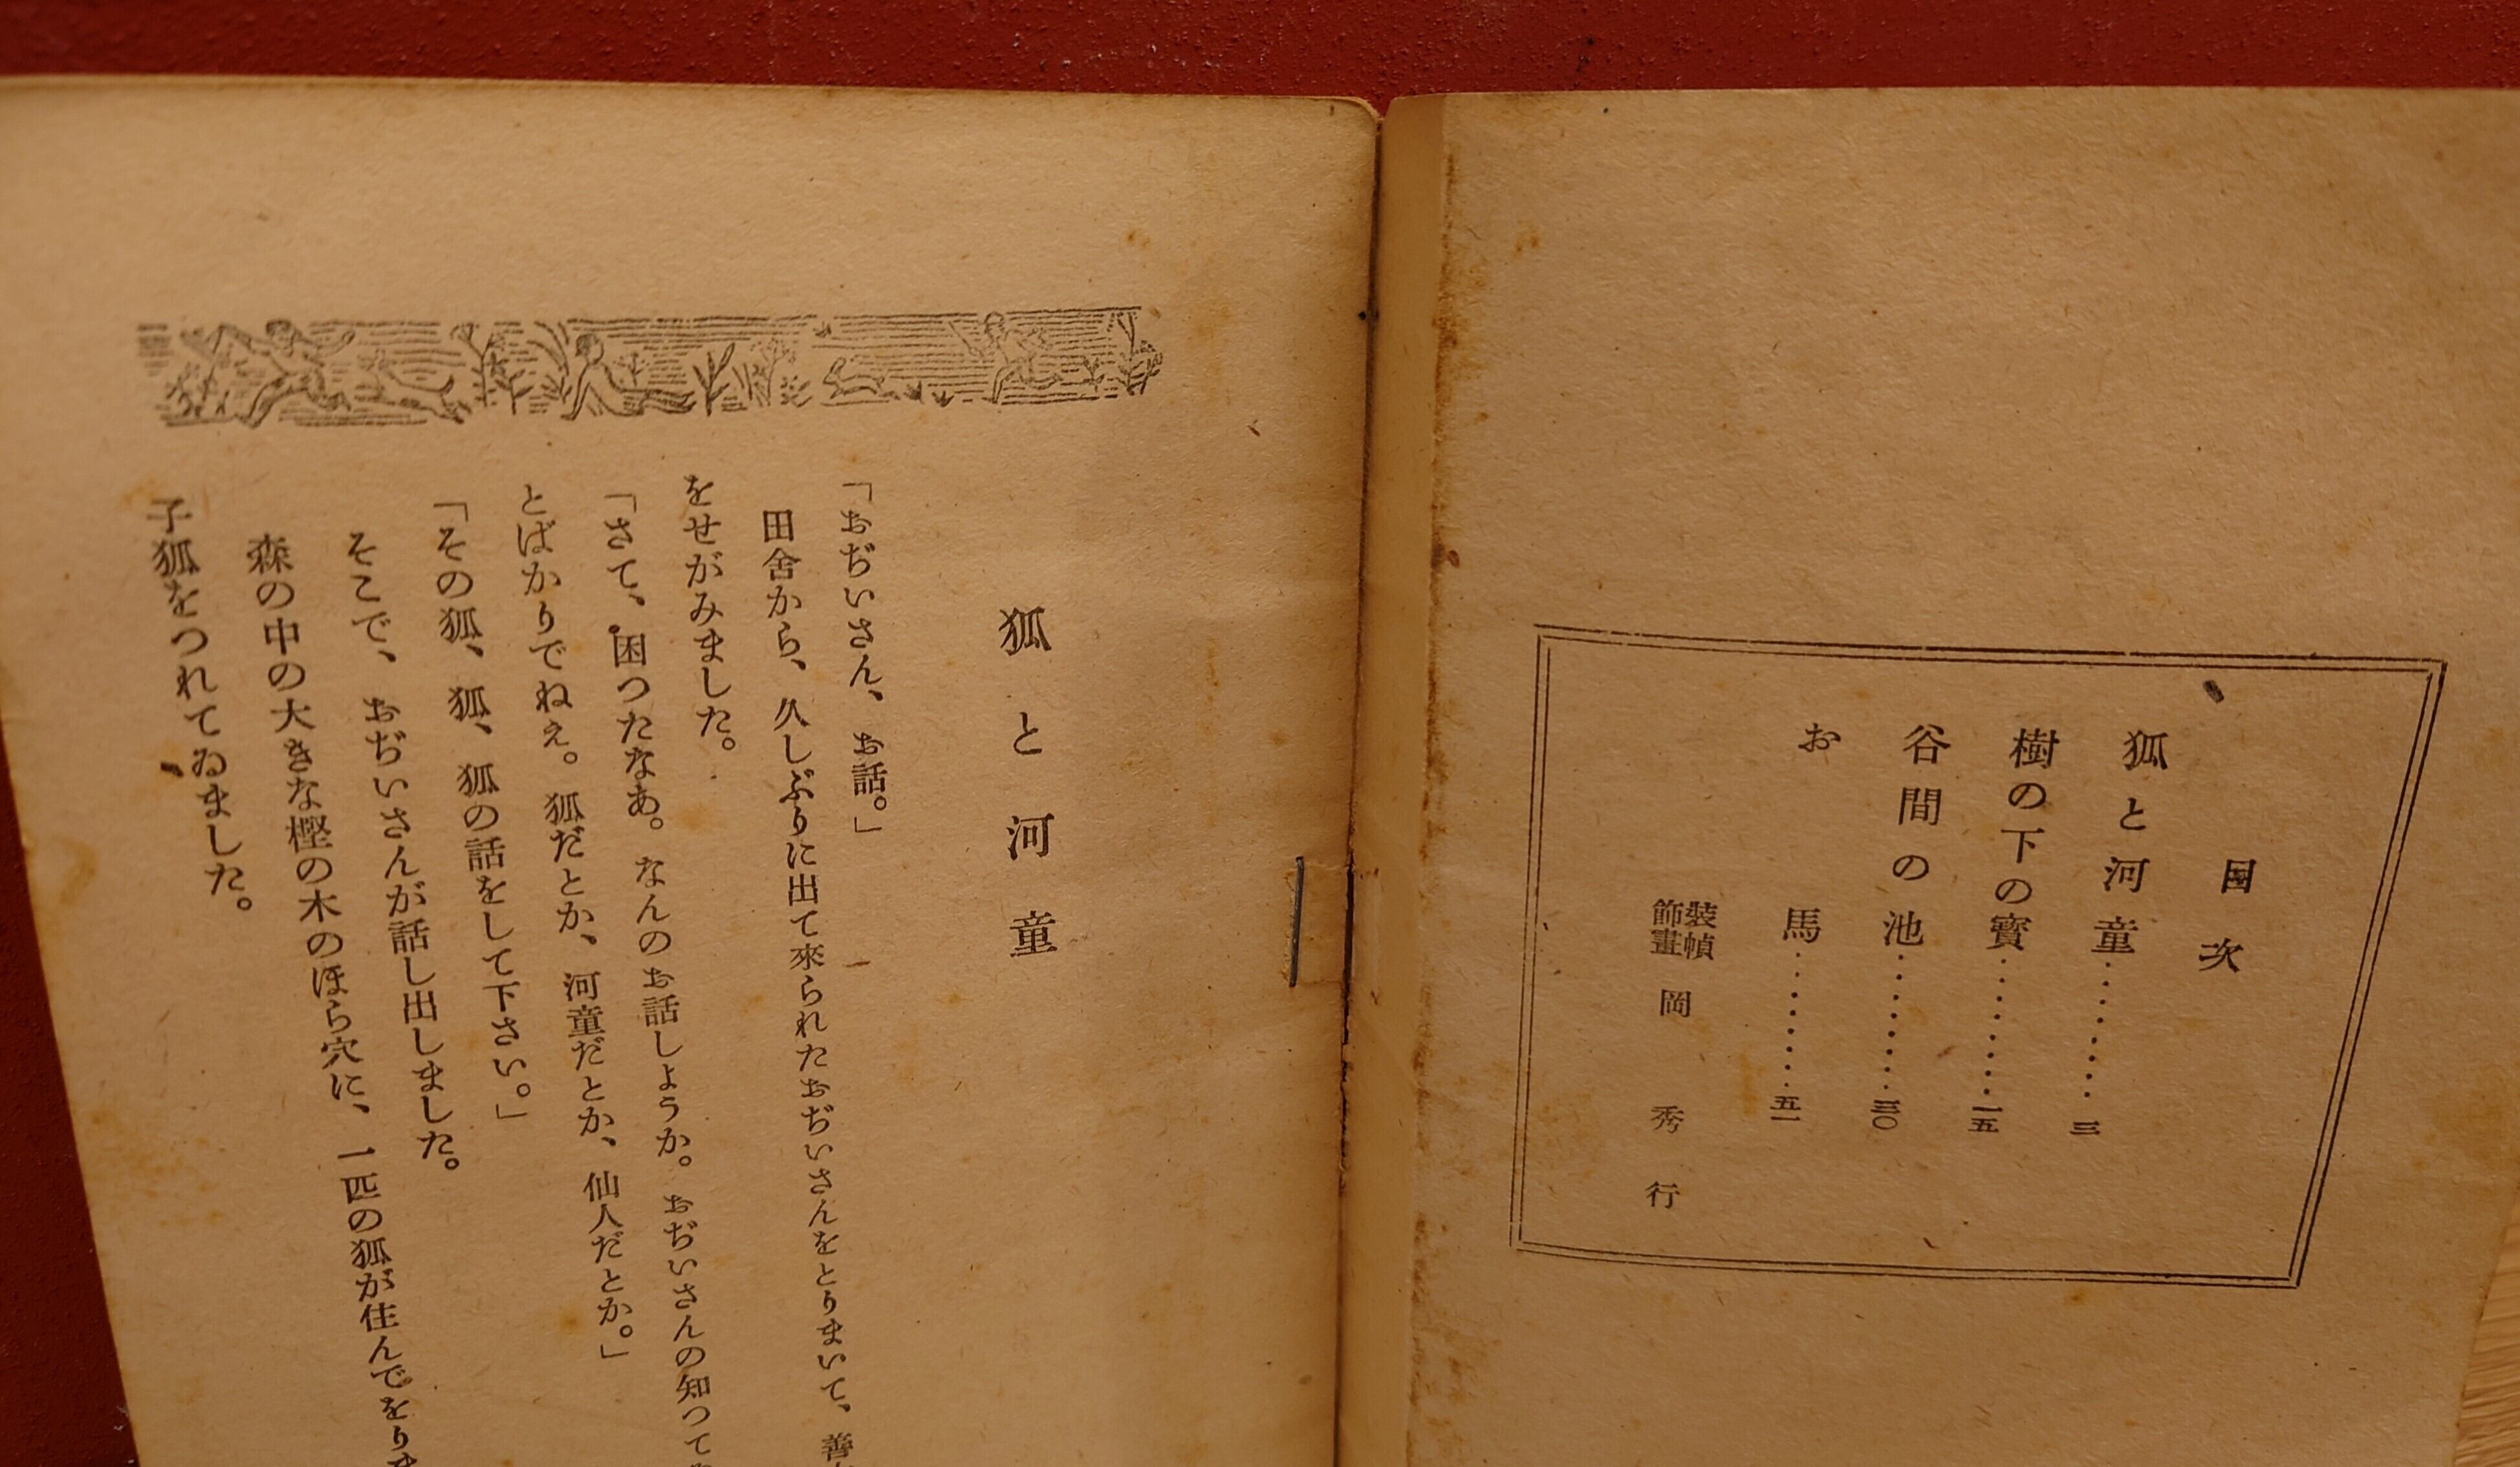 目次
狐と河童・・・・・・・三
樹の下の寳・・・・・・・一五
谷間の池・・・・・・・三〇
お馬・・・・・・・五一
裝幀
飾畫
岡秀行
狐と河童
「おぢいさん、お話。」
田舍から、久しぶりに出て來られたおぢいさんをとりまいて、善
をせがみました。
「さて、困つたなあ。なんのお話しようか。おぢいさんの知つて
とばかりでねえ。狐だとか、河童だとか、仙人だとか。」
「その狐、狐、狐の話をして下さい。」
そこで、おぢいさんが話し出しました。
森の中の大きな樫の木のほら穴に、一匹の狐が住んでをり
子狐をつれてゐました。